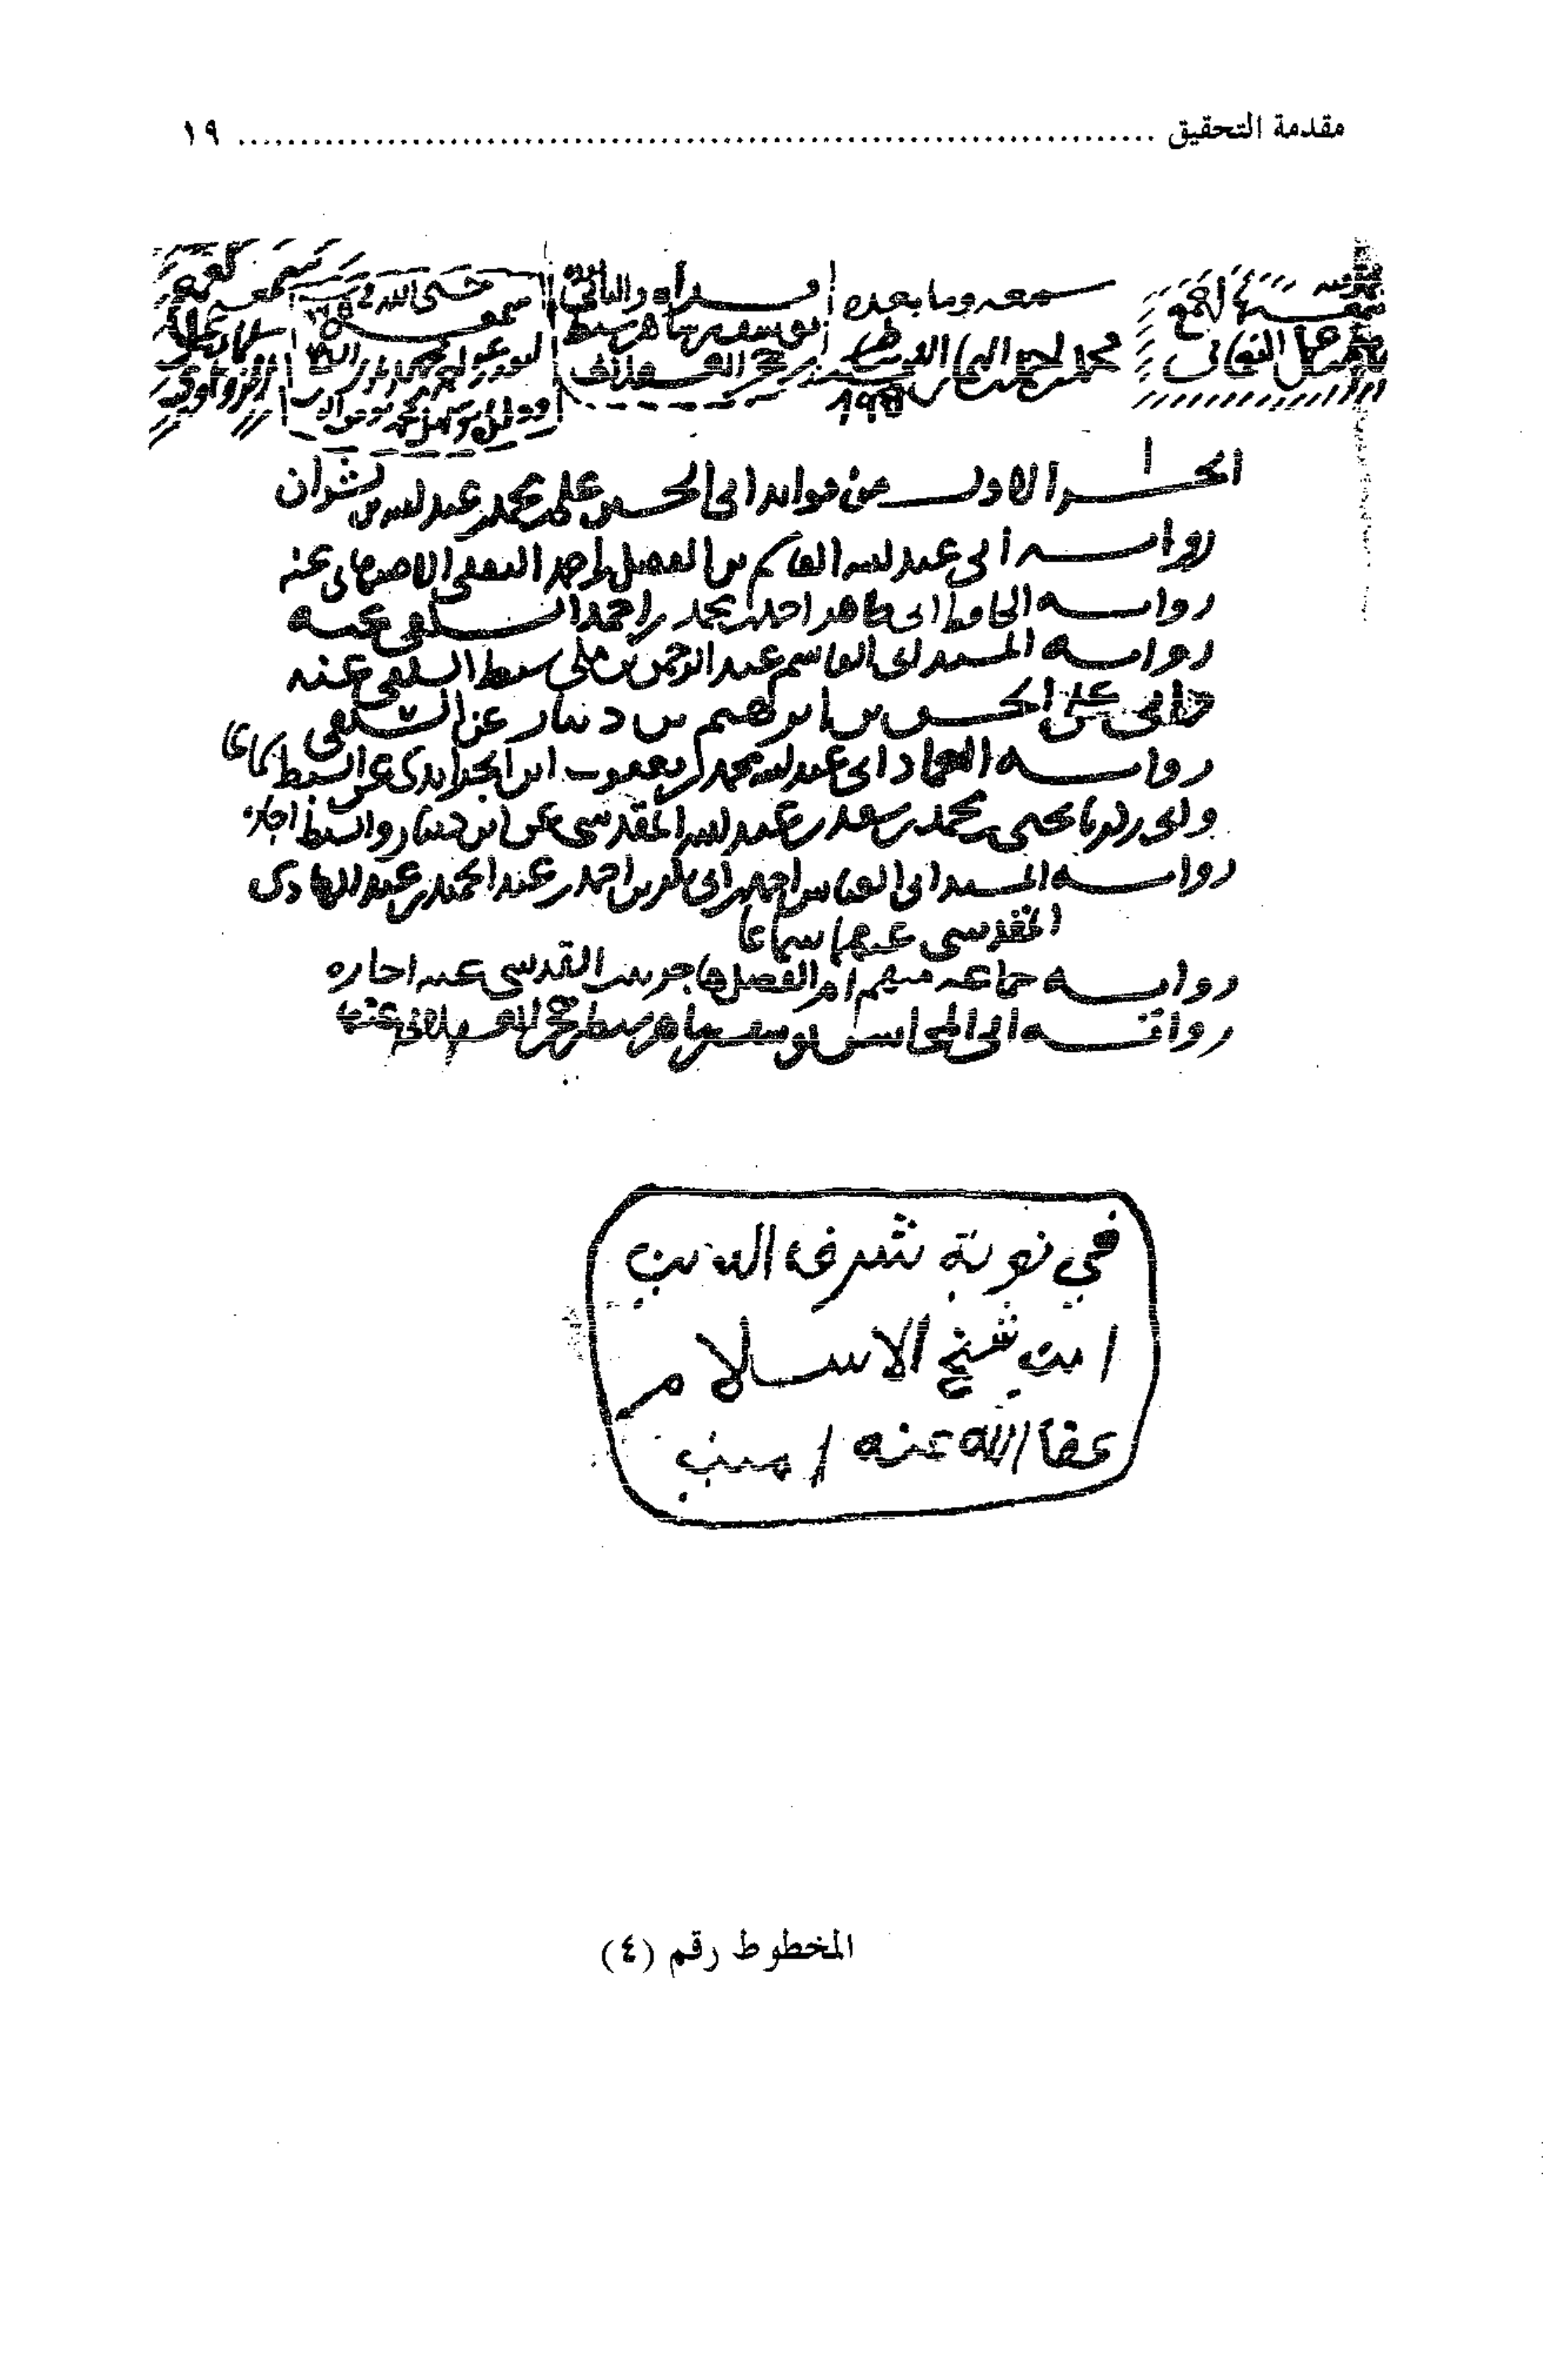 مقدمة التحقيق ........ ١٩
سمعه وما بعده
محمد
١٩٨
قراه والثاني
يوسف بن شاهين سبط
بن حجر العسقلاني
الجزء الاول من فوايد ابي الحسين علي بن محمد بن عبد الله بن بشران
رواية ابي عبد الله القاسم بن الفضل بن احمد الثقفي الاصبهاني عنه
رواية الحافظ ابي طاهر احمد بن محمد بن احمد السلفي عنه
رواية المسند ابي القاسم عبد الرحمن بن مكي سبط السلفي عنه
وابي علي الحسن بن ابرهيم بن دينار عن السلفي
رواية العماد ابي عبد الله محمد بن يعقوب ابن الجرايدي عن السبط سماعا
وابي زكريا يحيى بن محمد بن سعد بن عبد الله المقدسي عن ابن دينار والسبط اجازة
رواية المسند ابي العباس احمد بن ابي بكر بن احمد بن عبد الحميد بن عبد الهادي
المقدسي عنهما سماعا
رواية جماعه منهم ام الفضل هاجر بنت القدسي عنه اجازه
رواية ابي المحاسن يوسف بن شاهين سبط بن حجر العسقلاني عنها
في نوبة شرف الدين
ابن شيخ الاسلام
عفا الله عنه امين
المخطوط رقم (٤)